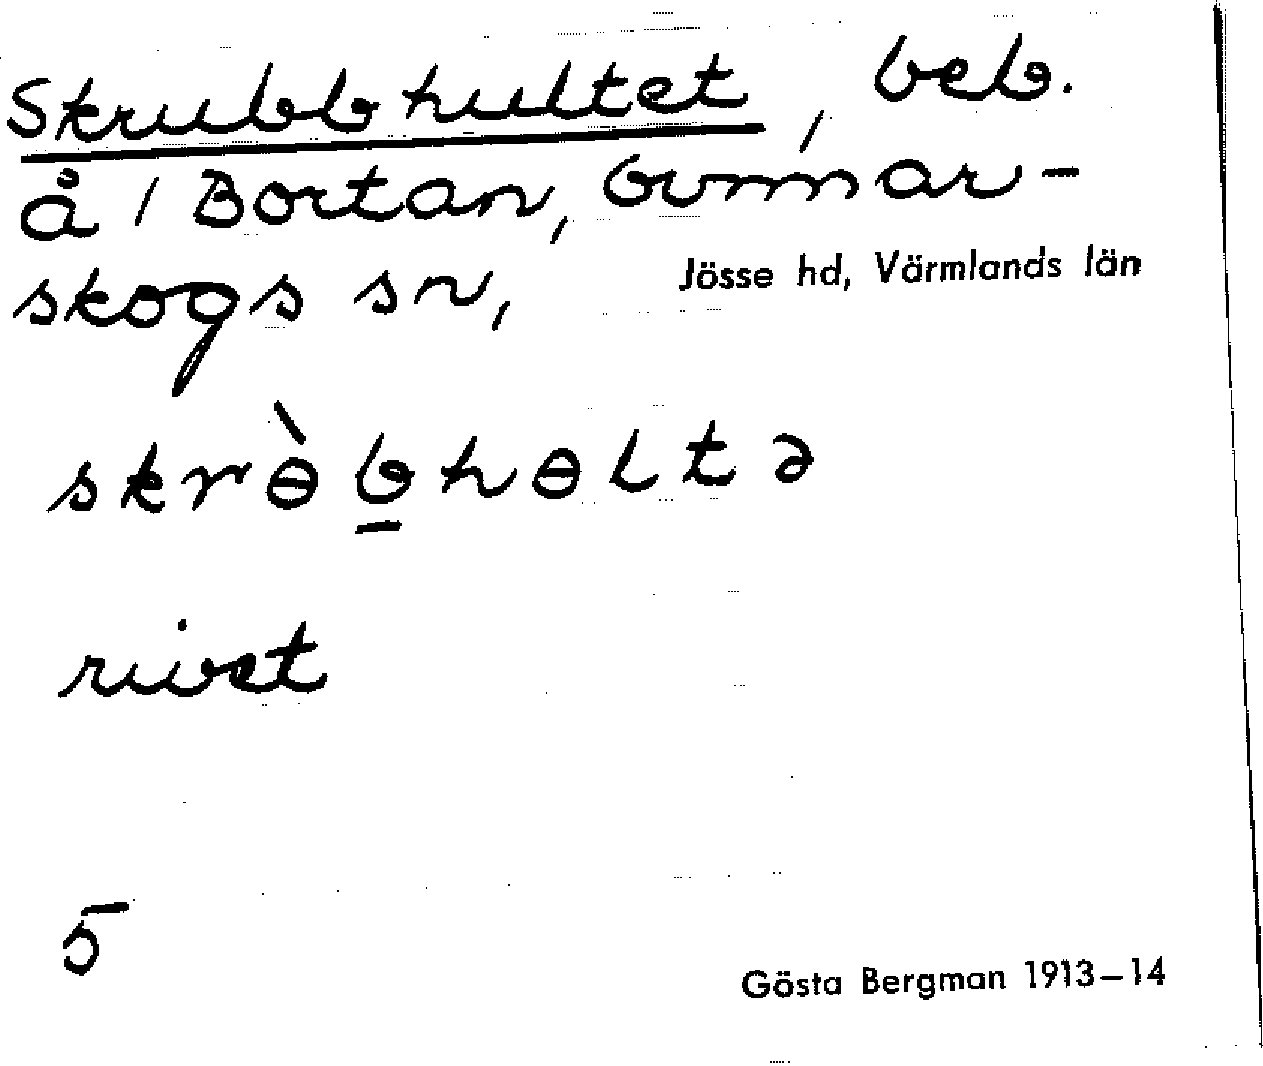 Skrubbhultet, beb.
å 1 Bortan, Gunnar-
skogs sn,
Jösse hd, Värmlands län
skrɵ̀b̲hɵltə
rivet
5
Gösta Bergman 1913–14